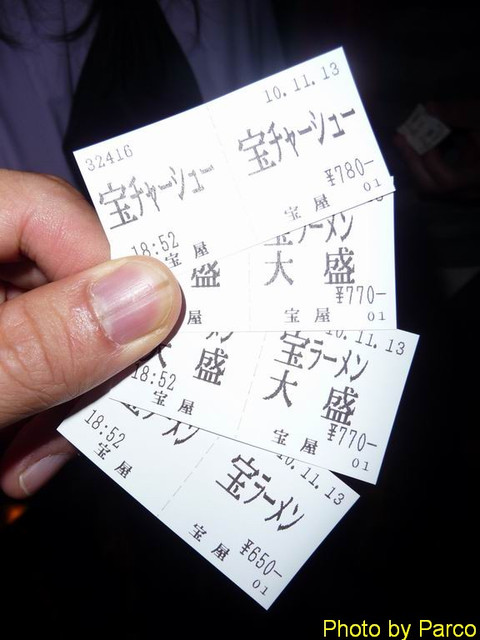 32416
宝チャーシュー
18:52
宝屋
10.11.13
宝チャーシュー
¥780-
宝屋
01
盛
屋
宝ラーメン
大盛
¥770-
宝屋
01
大盛
18:52
宝屋
10.11.13
宝ラーメン
大盛
¥770-
宝屋
01
ラーメン
18:52
宝屋
10.11.13
宝ラーメン
¥650-
宝屋
01
Photo by Parco